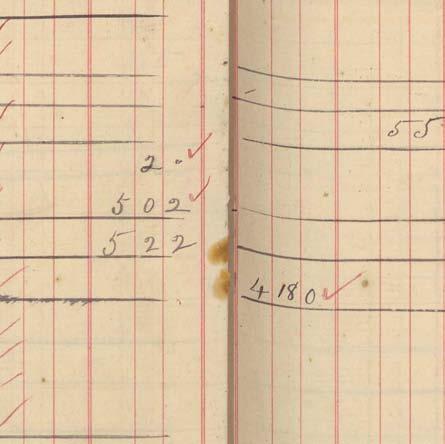 2 . ✓
5 0 2 ✓
5 2 2
5 5
4 18 0 ✓